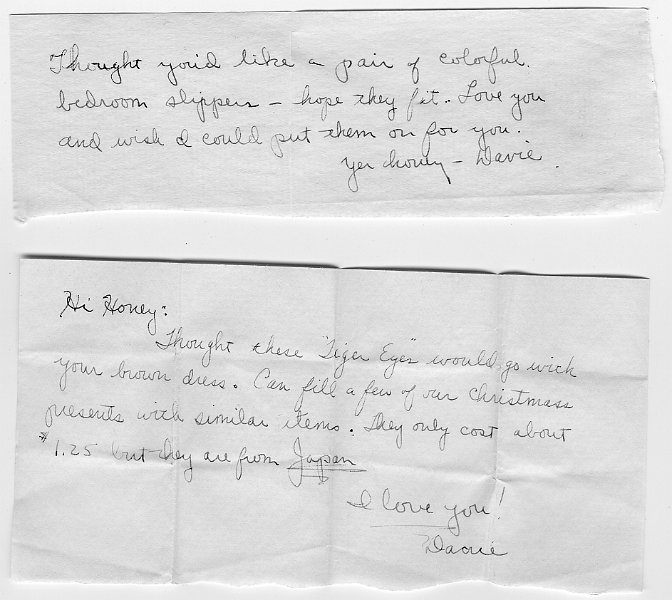 Thought you'd like a pair of colorful.
bedroom slippers – hope they fit.. Love you
and wish I could put them on for you.
Yer honey – Davie.
Hi Honey:
Thought these "Tiger Eyes" would go with
your brown dress. Can fill a few of our Christmass
presents with similar items. They only cost about
$1.25 but they are from Japan
I love you!
Davie